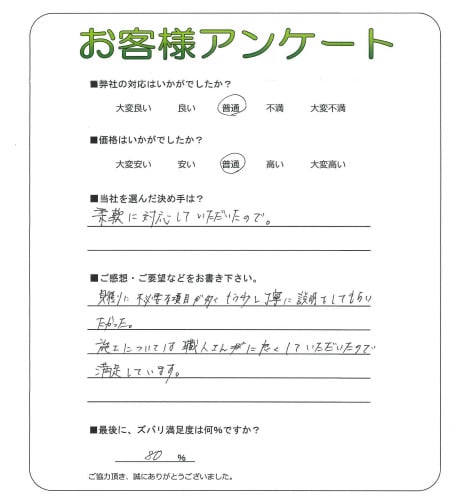 お客様アンケート
■弊社の対応はいかがでしたか？
大変良い 良い 普通 不満 大変不満
■価格はいかがでしたか？
大変安い 安い 普通 高い 大変高い
■当社を選んだ決め手は？
柔軟に対応していただいたので。
■ご感想・ご要望などをお書き下さい。
見積りに不必要な項目が多く もう少し丁寧に説明をしてもらい
たかった。
施工については職人さんがに良くしていただいたので
満足しています。
■最後に、ズバリ満足度は何％ですか？
80 ％
ご協力頂き、誠にありがとうございました。